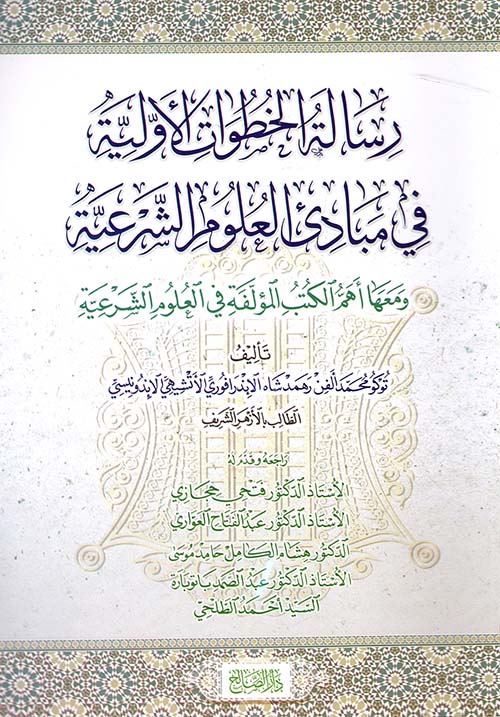 رسالة الخطوات الأولية
في مبادئ العلوم الشرعية
ومعها أهم الكتب المؤلفة في العلوم الشرعية
تأليف
توكو محمد ألفن رهمدشاه الإندرافوري الأتشيهي الإندونيسي
الطالب بالأزهر الشريف
راجعه وقدم له
الأستاذ الدكتور فتحي حجازي
الأستاذ الدكتور عبد الفتاح العواري
الدكتور هشام الكامل حامد موسى
الأستاذ الدكتور عبد الصمد يانوبارة
السيد أحمد الطلحي
دار الصالح